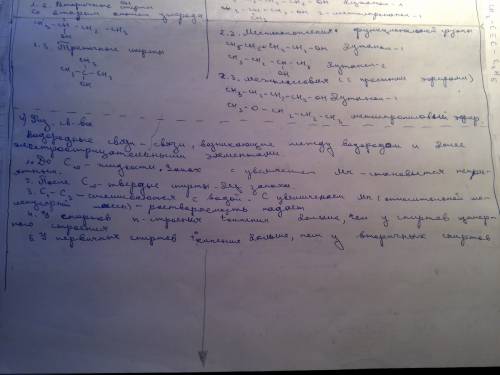 1.2. Вторичные спирты
со вторым атомом углерода
CH3-CH-CH2-CH3
OH
1.3. Третичные спирты
CH3
CH3-C-CH3
OH
Бутанол-1
OH 2-метилпропанол-1
CH3
2.2. Местоположения функциональной группы
CH3-CH2-CH2-CH2-OH Бутанол-1
CH3-CH2-CH-CH3 Бутанол-2
OH
2.3. межклассовая (с простыми эфирами)
CH3-CH2-CH2-CH2-OH Бутанол-1
CH3-O-CH2-CH2-CH3 метилпропиловый эфир
Физ. св-ва
Водородные связи - связи, возникающие между водородом и более
электроотрицательными элементами
1. До C10 - жидкости, запах с увеличением Mr - становится неприятным.
2. После C10 - твердые спирты - без запаха
3. C1-C3 - смешиваются с водой. С увеличением Mr (относительной молекулярной масс) - растворимость падает
4. У спиртов н-строения t кипения больше, чем у спиртов
строения
5. У первичных спиртов t кипения больше, чем у вторичных спиртов